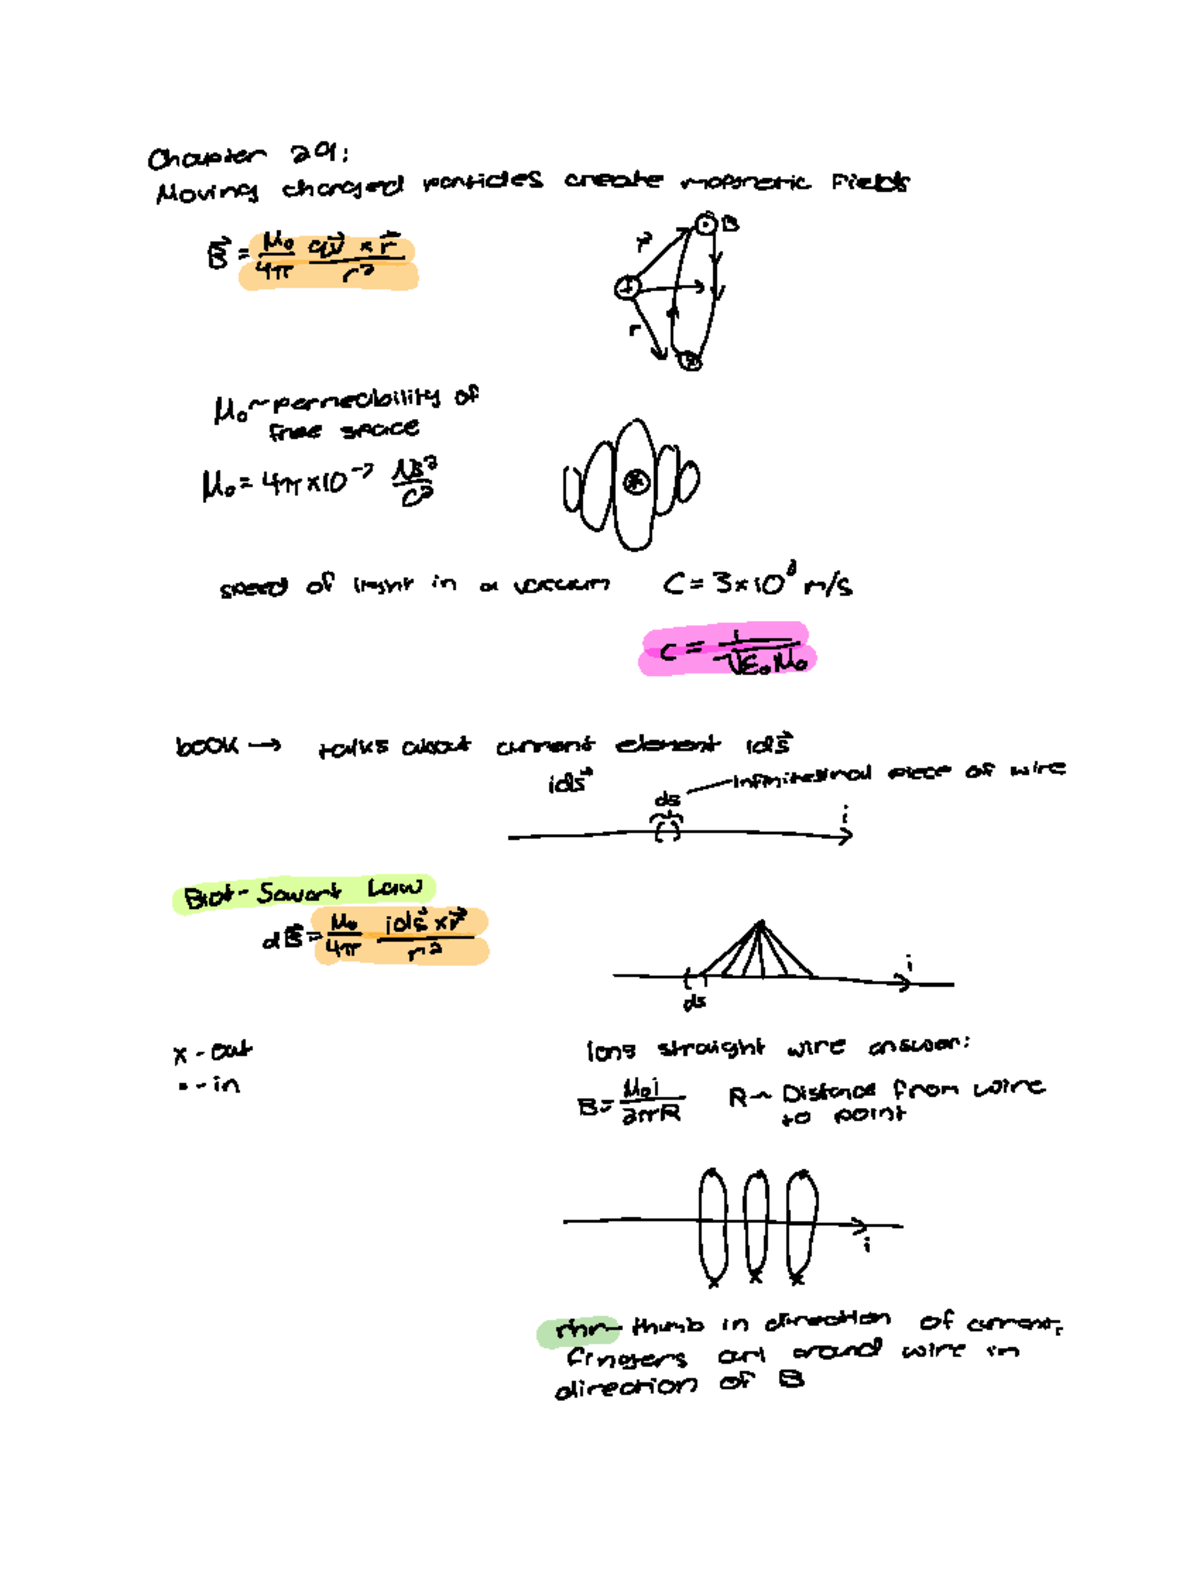 Chapter 29:
Moving charged particles create magnetic fields
B⃗ = μ₀/4π qv⃗ × r⃗/r²
B
r⃗
+
r
x
μ₀ ~ permeability of
free space
μ₀ = 4π×10⁻⁷ Ns²/C²
speed of light in a vacuum C = 3×10⁸ m/s
C = 1/√ε₀μ₀
book → talks about current element ids⃗
ids⃗
infinitesimal piece of wire
ds
i
Biot-Savart Law
dB⃗ = μ₀/4π ids⃗ × r⃗/r²
i
ds
x - out
• - in
long straight wire answer:
B = μ₀i/2πR R ~ Distance from wire
to point
x x x
i
rhr ~ thumb in direction of current,
fingers curl around wire in
direction of B